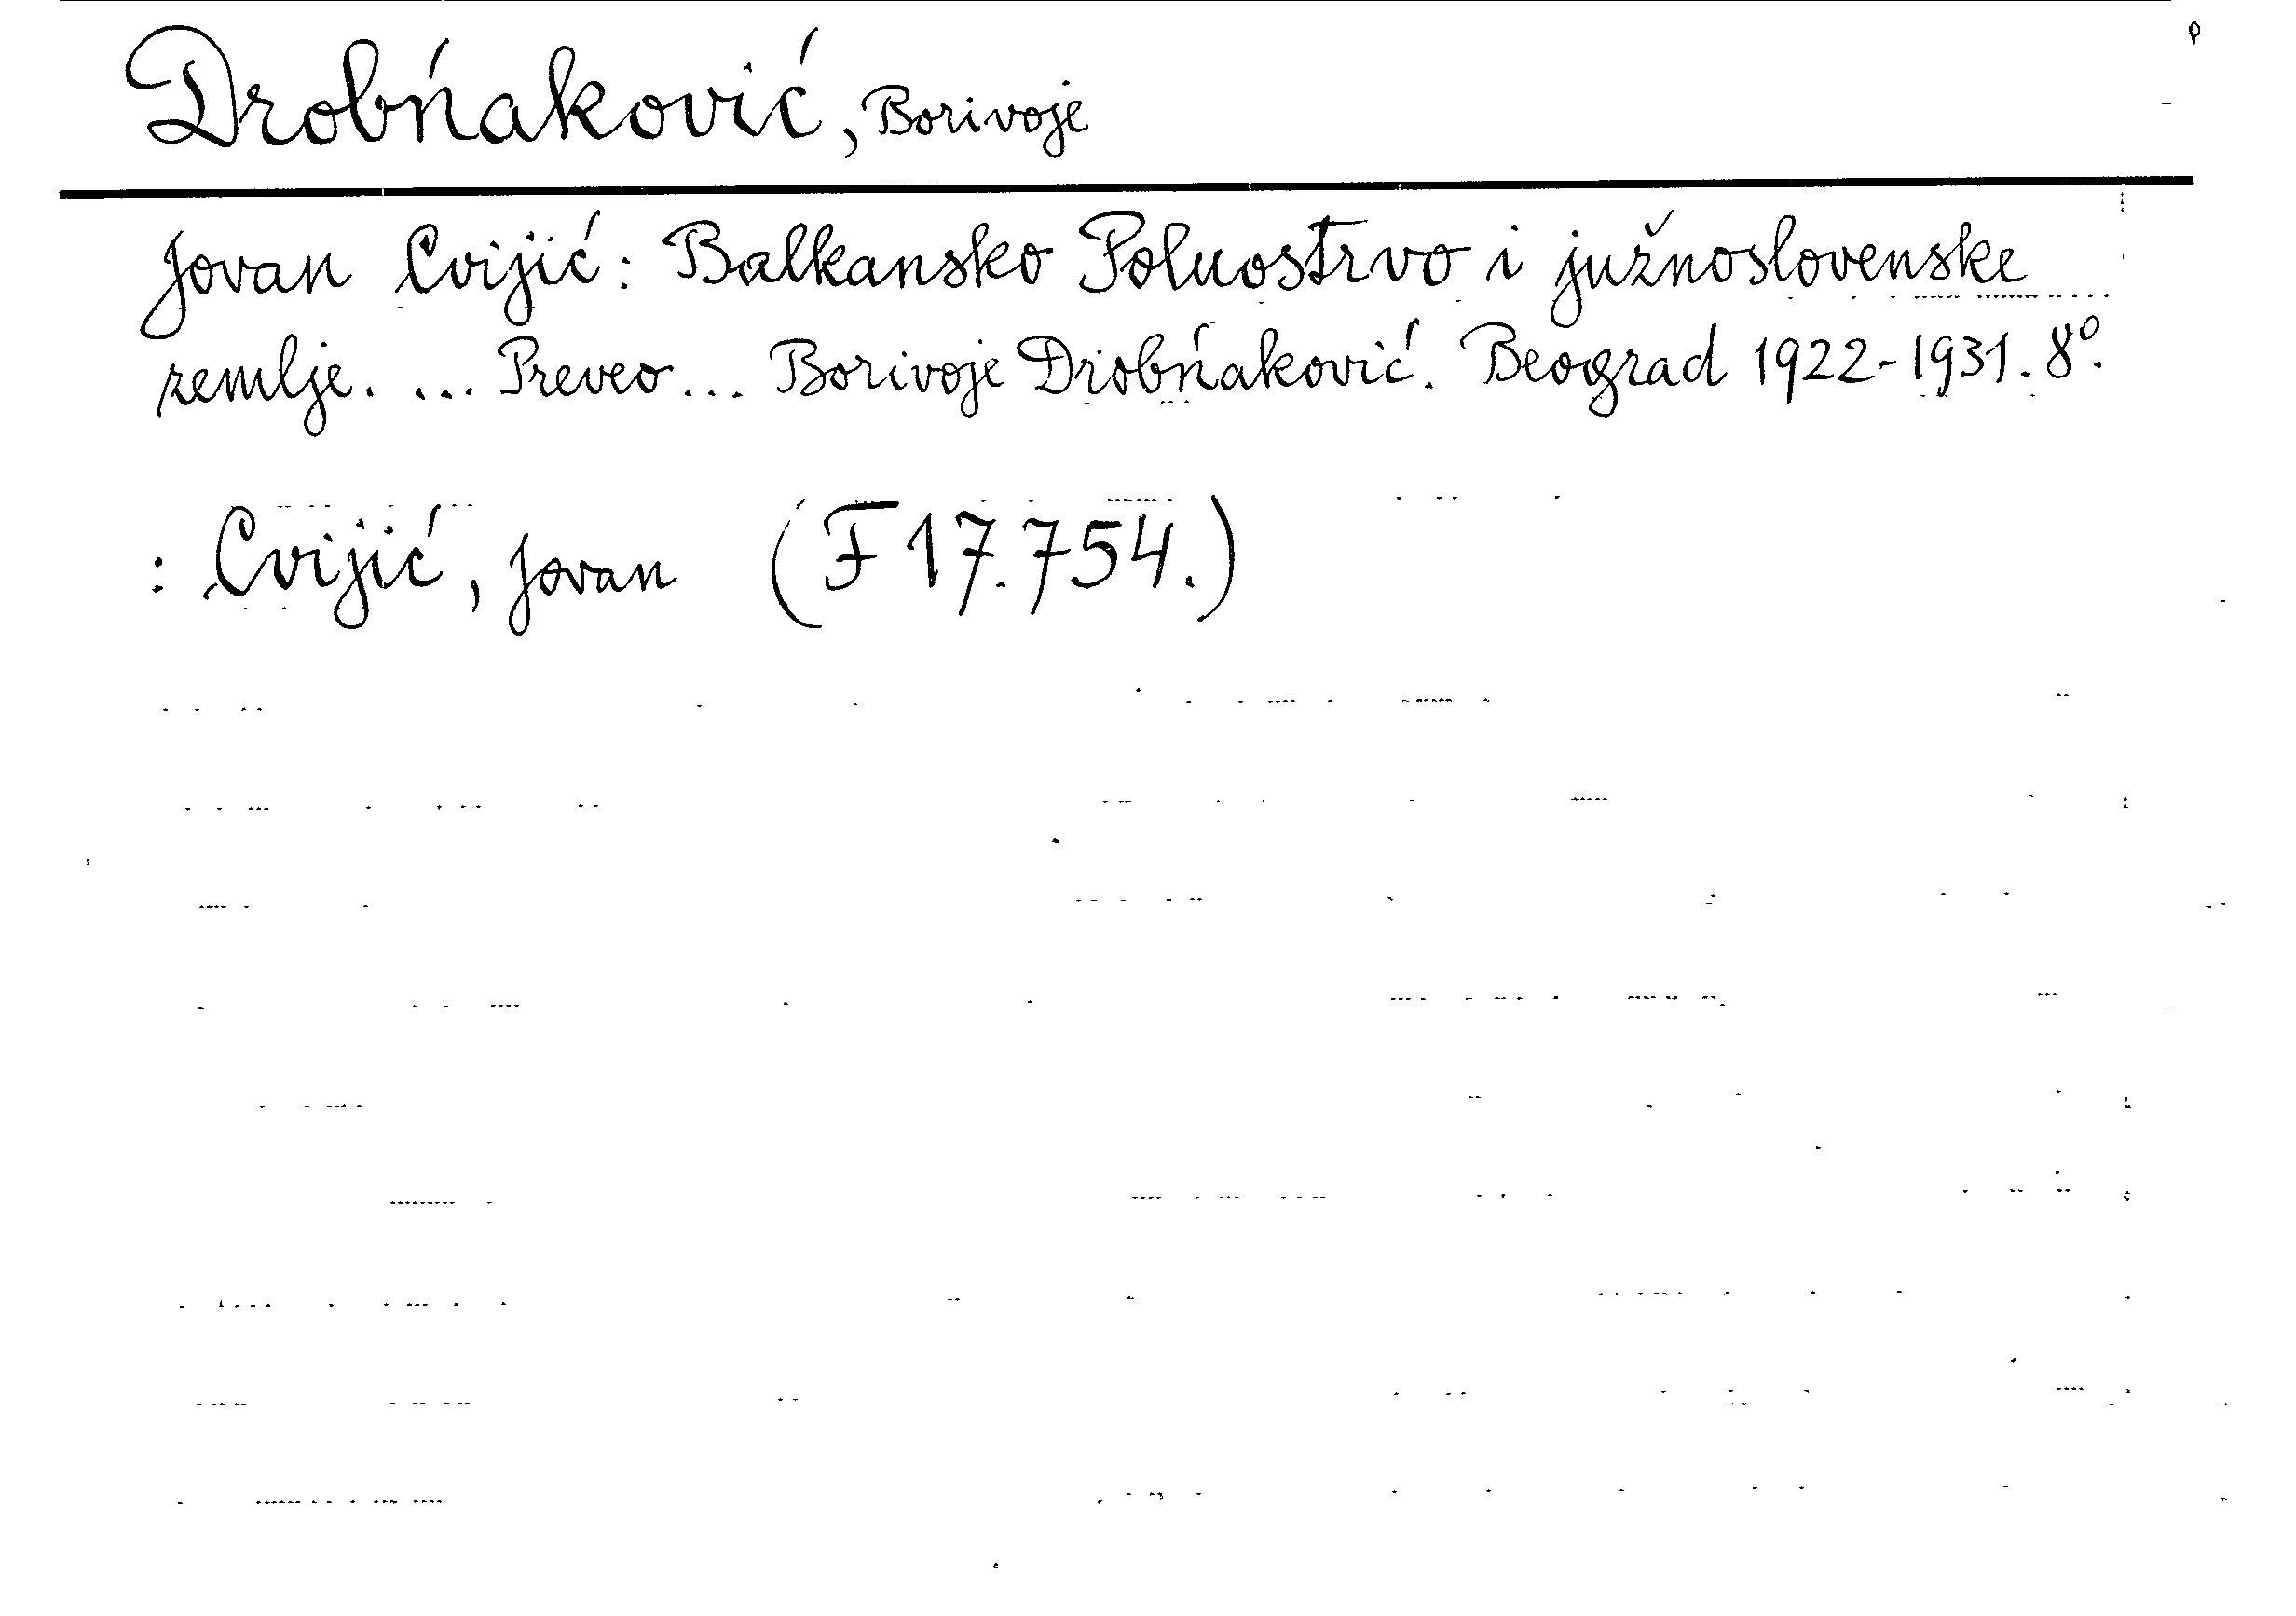 Drobńaković, Borivoje
Jovan Cvijić: Balkansko Poluostrvo i južnoslovenske
zemlje. ... Preveo ... Borivoje Drobńaković. Beograd 1922-1931. 8º.
: Cvijić, Jovan (F 17.754.)